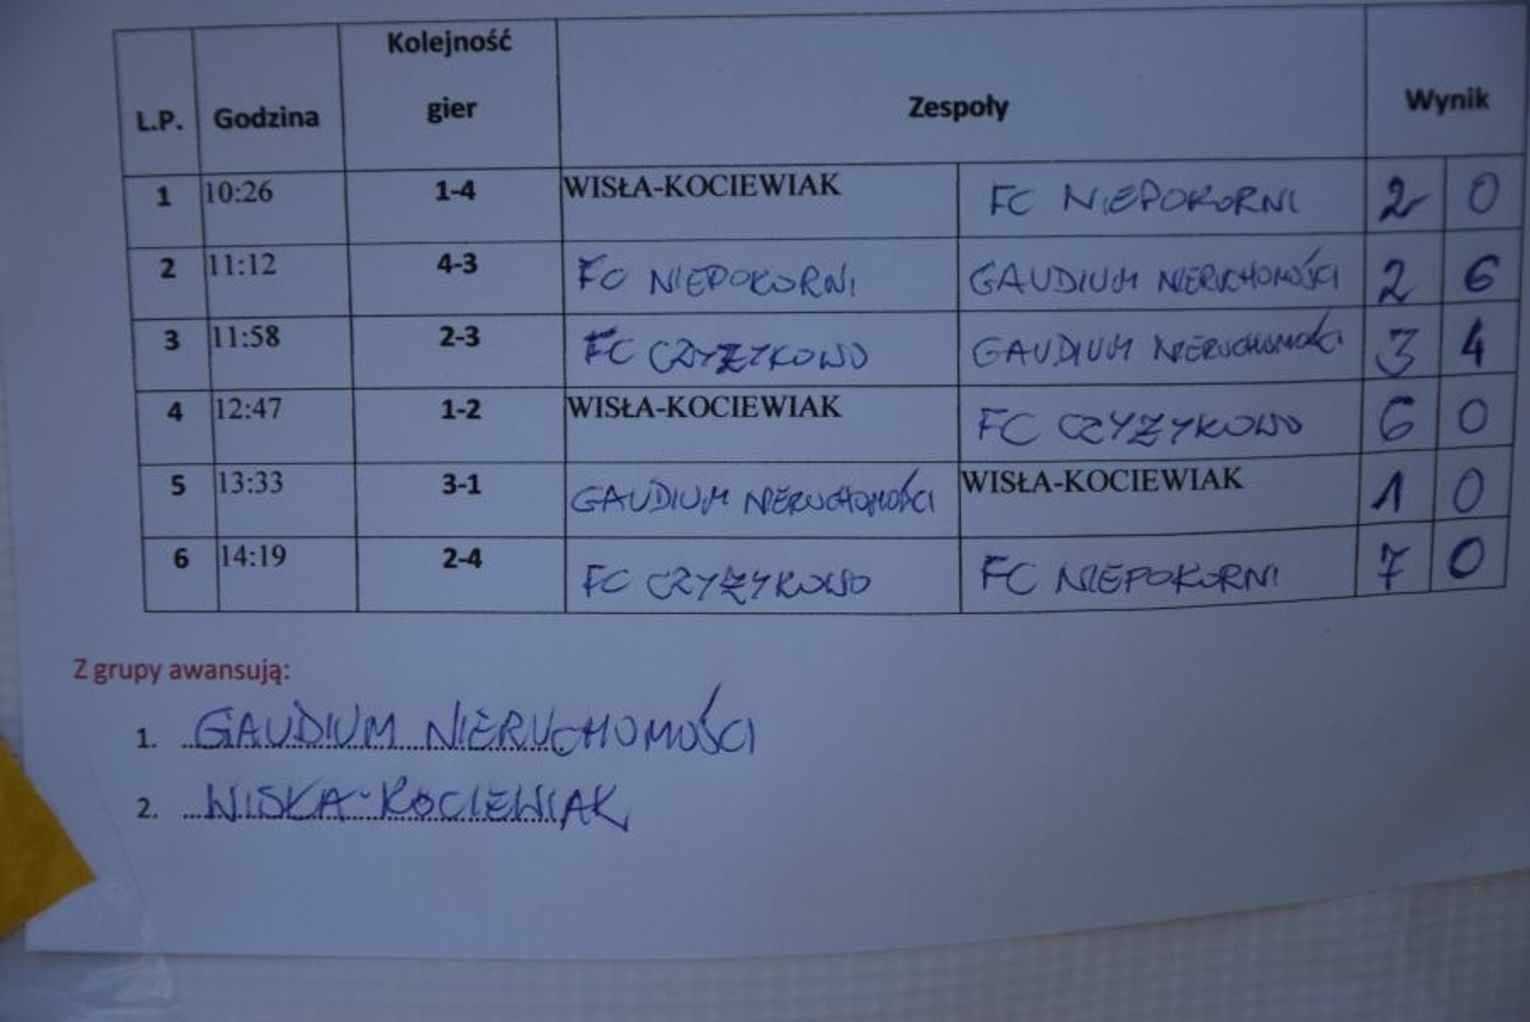 L.P. Godzina Kolejność gier Zespoły Wynik
1 10:26 1-4 WISŁA-KOCIEWIAK FC NIEPOKORNI 2 0
2 11:12 4-3 FC NIEPOKORNI GAUDIUM NIERUCHOMOŚCI 2 6
3 11:58 2-3 FC CZYZYKOWO GAUDIUM NIERUCHOMOŚCI 3 4
4 12:47 1-2 WISŁA-KOCIEWIAK FC CZYZYKOWO 6 0
5 13:33 3-1 GAUDIUM NIERUCHOMOŚCI WISŁA-KOCIEWIAK 1 0
6 14:19 2-4 FC CZYZYKOWO FC NIEPOKORNI 7 0
Z grupy awansują:
1. GAUDIUM NIERUCHOMOŚCI
2. WISŁA-KOCIEWIAK